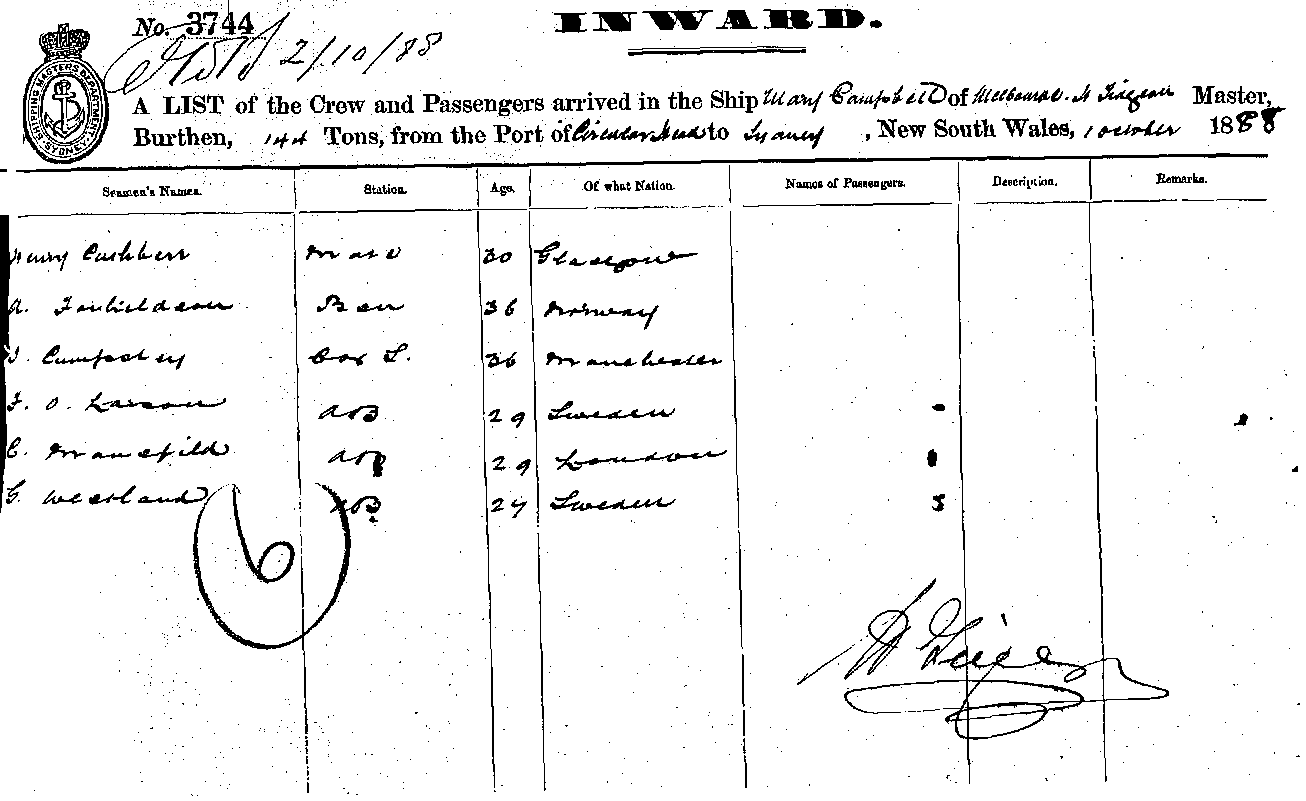 No. 3744
INWARD.
2/10/88
SHIPPING MASTERS DEPARTMENT SYDNEY
A LIST of the Crew and Passengers arrived in the Ship Mary Campbell of Melbourne. Master,
Burthen, 144 Tons, from the Port of Circular Head to Sydney, New South Wales, 1 October 1888
Seamen's Names. Station. Age. Of what Nation. Names of Passengers. Description. Remarks.
Henry Cuthbert Mate 30 Glasgow
A. 36 Norway
Cook S. 36 Manchester
F. O. Larson AB 29 Sweden
C. Mansfield AB 29 London
G. Westland AB 27 Sweden
6